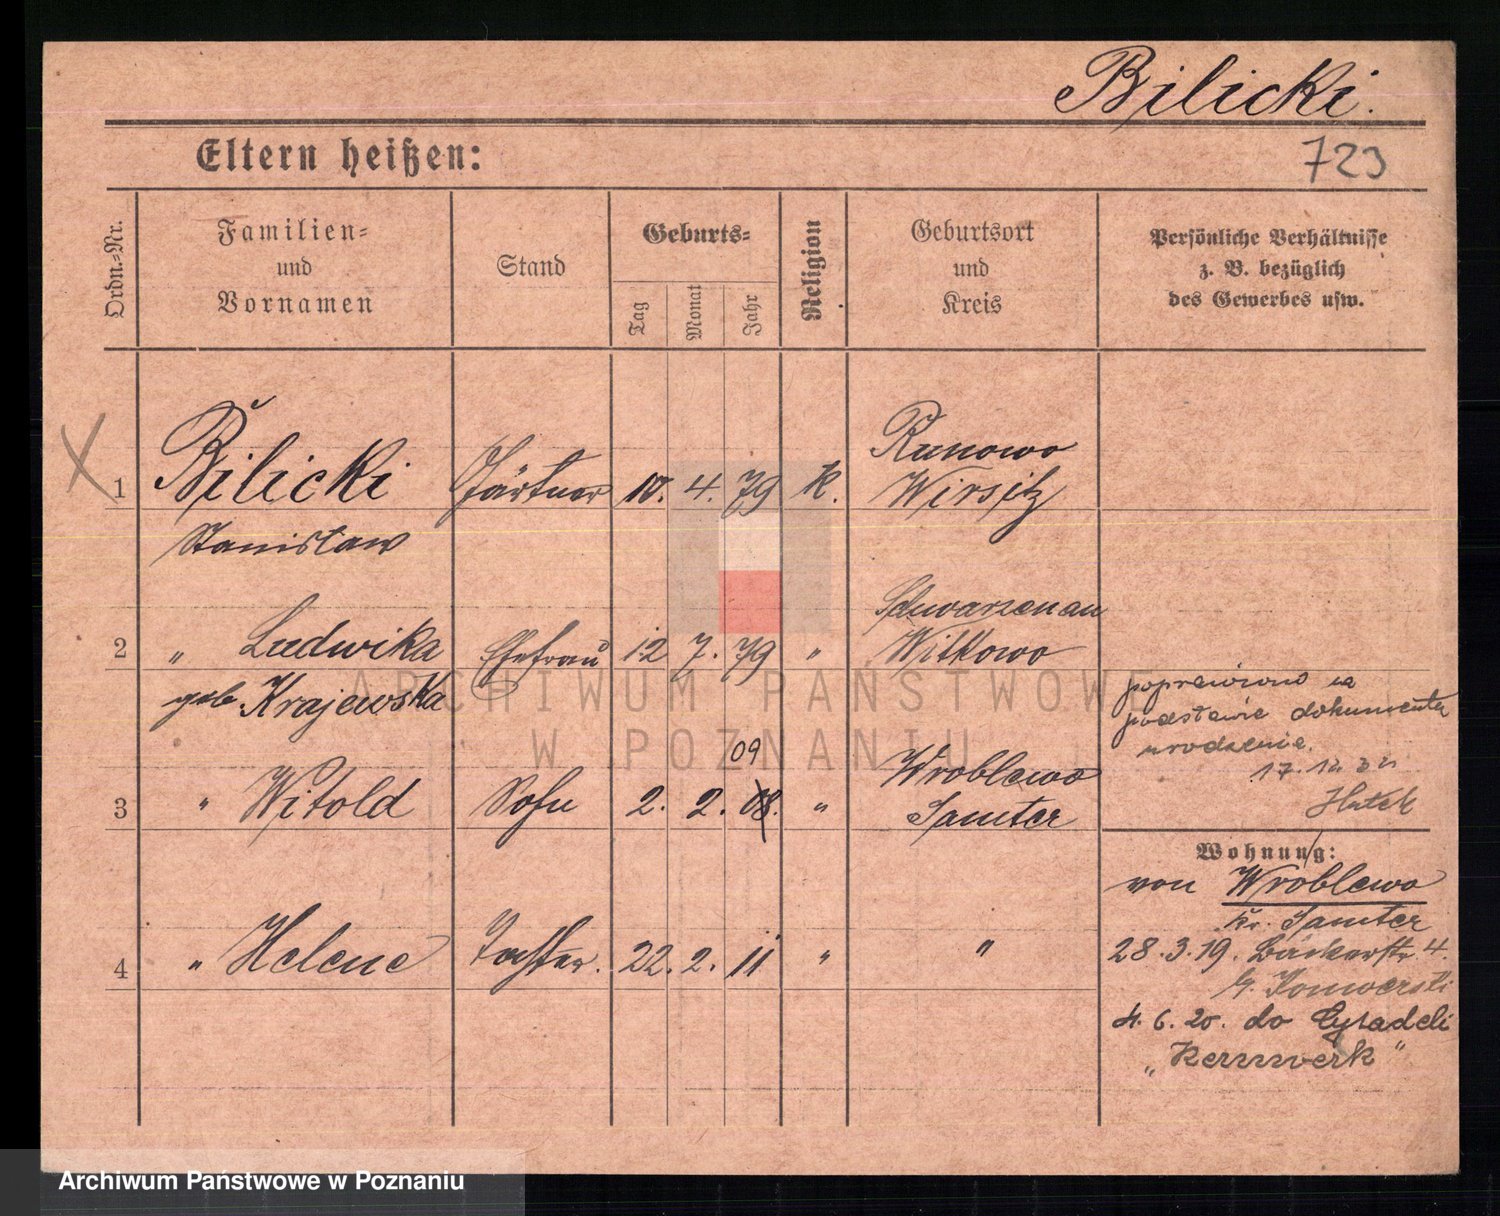 Bilicki.
Eltern heißen:
723
Ordn.-Nr.
Familien-
und
Vornamen
Stand
Geburts-
Tag
Monat
Jahr
Religion
Geburtsort
und
Kreis
Persönliche Verhältnisse
z. B. bezüglich
des Gewerbes usw.
X
1 Bilicki Gärtner 10. 4. 79 K. Runowo
Wirsitz
Stanisław
2 " Ludwika Ehefrau 12 7. 79 " Schwarzenau
Witkowo
geb Krajewska
09
3 " Witold Sohn 2. 2. 08. " Wroblewo
Samter
4 " Helene Tochter. 22. 2. 11 " "
poprawiono na
podstawie dokumentu
urodzenia.
17.12.32
Wohnung:
von Wroblewo
Kr. Samter
28.3.19. Bäckerstr. 4.
4.6.20. do Cytadeli
"Kernwerk"
ARCHIWUM PAŃSTWOWE
W POZNANIU
Archiwum Państwowe w Poznaniu